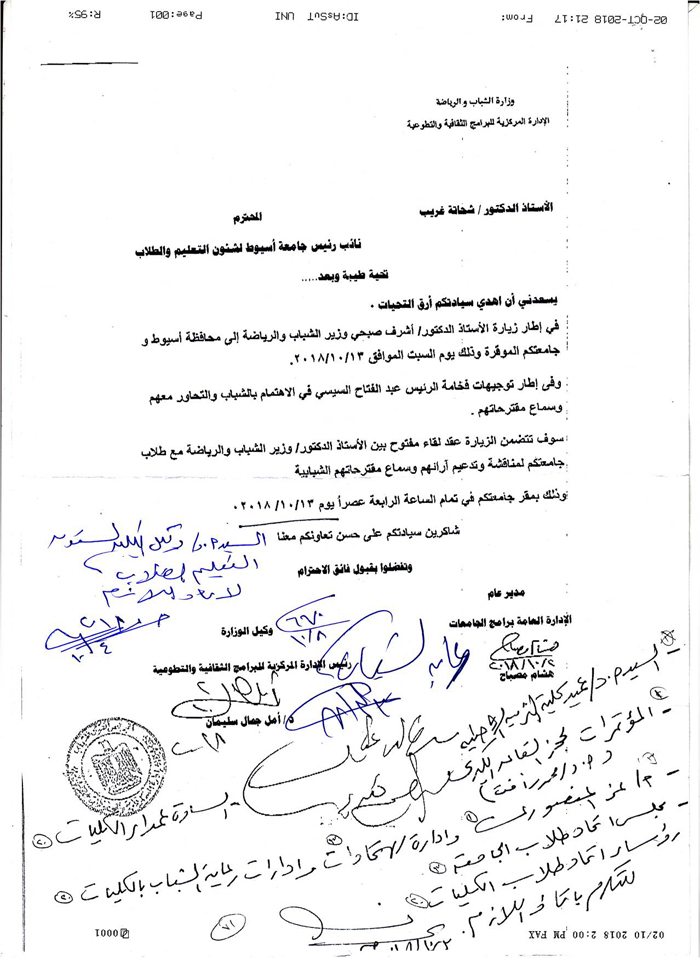 02-OCT-2018 21:17 From: ID:ASSUT UNI Page:001 R:95%
وزارة الشباب والرياضة
الإدارة المركزية للبرامج الثقافية والتطوعية
الأستاذ الدكتور / شحاتة غريب المحترم
نائب رئيس جامعة أسيوط لشئون التعليم والطلاب
تحية طيبة وبعد.....
يسعدني أن اهدي سيادتكم أرق التحيات .
في إطار زيارة الأستاذ الدكتور/ أشرف صبحي وزير الشباب والرياضة إلى محافظة أسيوط و
جامعتكم الموقرة وذلك يوم السبت الموافق ٢٠١٨/١٠/١٣.
وفى إطار توجيهات فخامة الرئيس عبد الفتاح السيسي في الاهتمام بالشباب والتحاور معهم
وسماع مقترحاتهم .
سوف تتضمن الزيارة عقد لقاء مفتوح بين الأستاذ الدكتور/ وزير الشباب والرياضة مع طلاب
جامعتكم لمناقشة وتدعيم آرائهم وسماع مقترحاتهم الشبابية
وذلك بمقر جامعتكم في تمام الساعة الرابعة عصراً يوم ٢٠١٨/١٠/١٣
شاكرين سيادتكم على حسن تعاونكم معنا
السيد م.د/ وكيل الكلية لشئون
التعليم والطلاب
لاتخاذ اللازم
وتفضلوا بقبول فائق الاحترام
مدير عام
الإدارة العامة برامج الجامعات
وكيل الوزارة
رئيس الإدارة المركزية للبرامج الثقافية والتطوعية
رعاية الشباب
٢٠١٨/١٠/٢
هشام مصباح
د/ أمل جمال سليمان
السيد م.د/ عميد كلية التربية الرياضية
المؤتمرات لحجز القاعة الكبرى
السادة عمداء الكليات
وإدارة الاتحادات وإدارات رعاية الشباب بالكليات
مجلس اتحاد طلاب الجامعة
رؤساء اتحاد طلاب الكليات
للتكرم باتخاذ اللازم
٧١
02/10 2018 2:00 PM FAX 0001